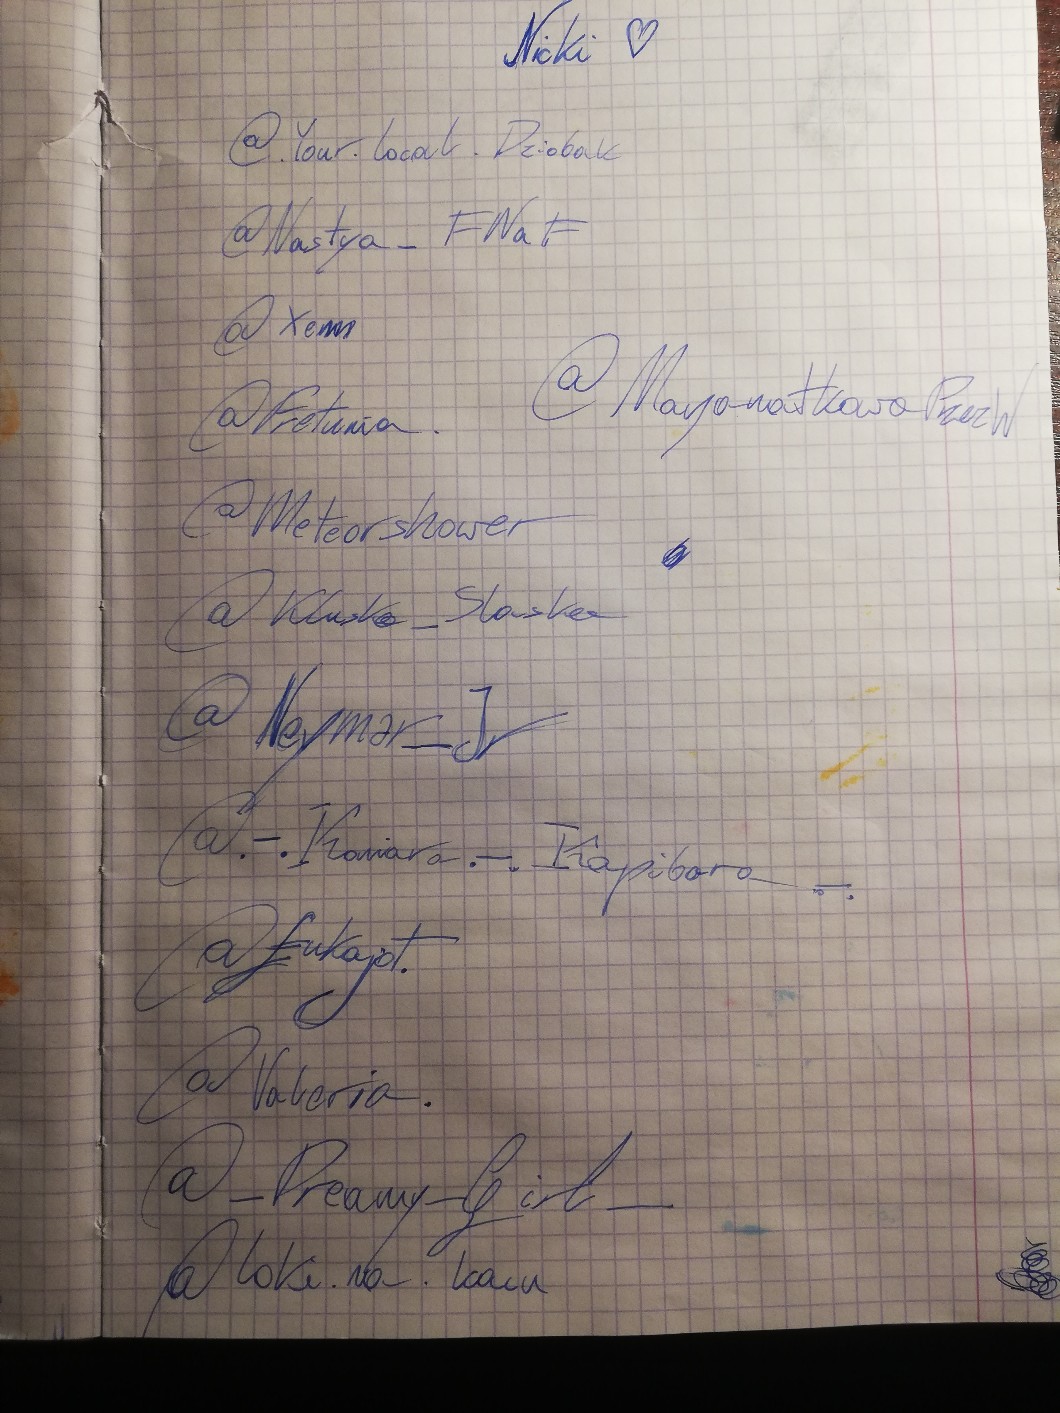 Nicki ♡
@.Your.local.Dziobak
@Nastya_FNaF
@Xemn
@Fretunia.
@MayonatkowoPrzezW
@Meteorshower
@Kluska_Slaska
@Neymar_Jr
@.-.Kaniara.-.Kapibara_-.
@Łukajot.
@Valeria.
@_Dreamy_Girl_
@loki.na.haiu